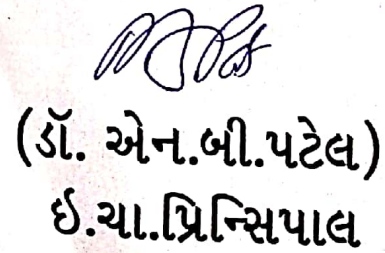 (ડૉ. એન.બી.પટેલ)
ઇ.ચા.પ્રિન્સિપાલ